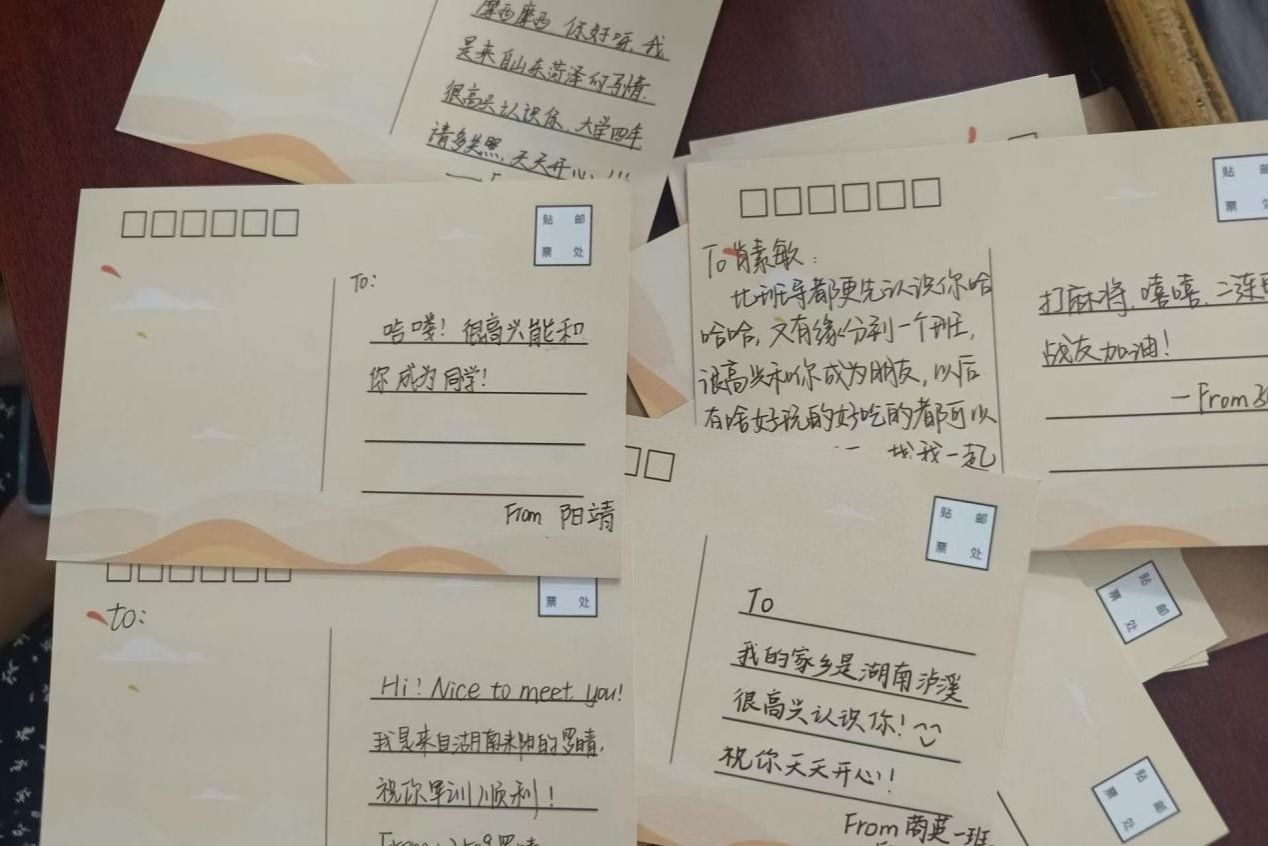 摩西摩西 你好呀,我
是来自山东菏泽的马倩
很高兴认识你、大学四年
请多关照,天天开心
贴 邮
票 处
To:
哈喽!很高兴能和
你成为同学!
From 阳靖
贴 邮
票 处
To 肖素敏:
比班导都更先认识你哈
哈哈,又有缘分到一个班,
很高兴和你成为朋友,以后
有啥好玩的好吃的都可以
找我一起
打麻将,嘻嘻,二连
战友加油!
—From
票 处
to:
Hi! Nice to meet you!
我是来自湖南耒阳的罗晴,
祝你军训顺利!
贴 邮
票 处
To
我的家乡是湖南泸溪
很高兴认识你!
祝你天天开心!
From 商英一班
贴 邮
票 处
贴 邮
票 处